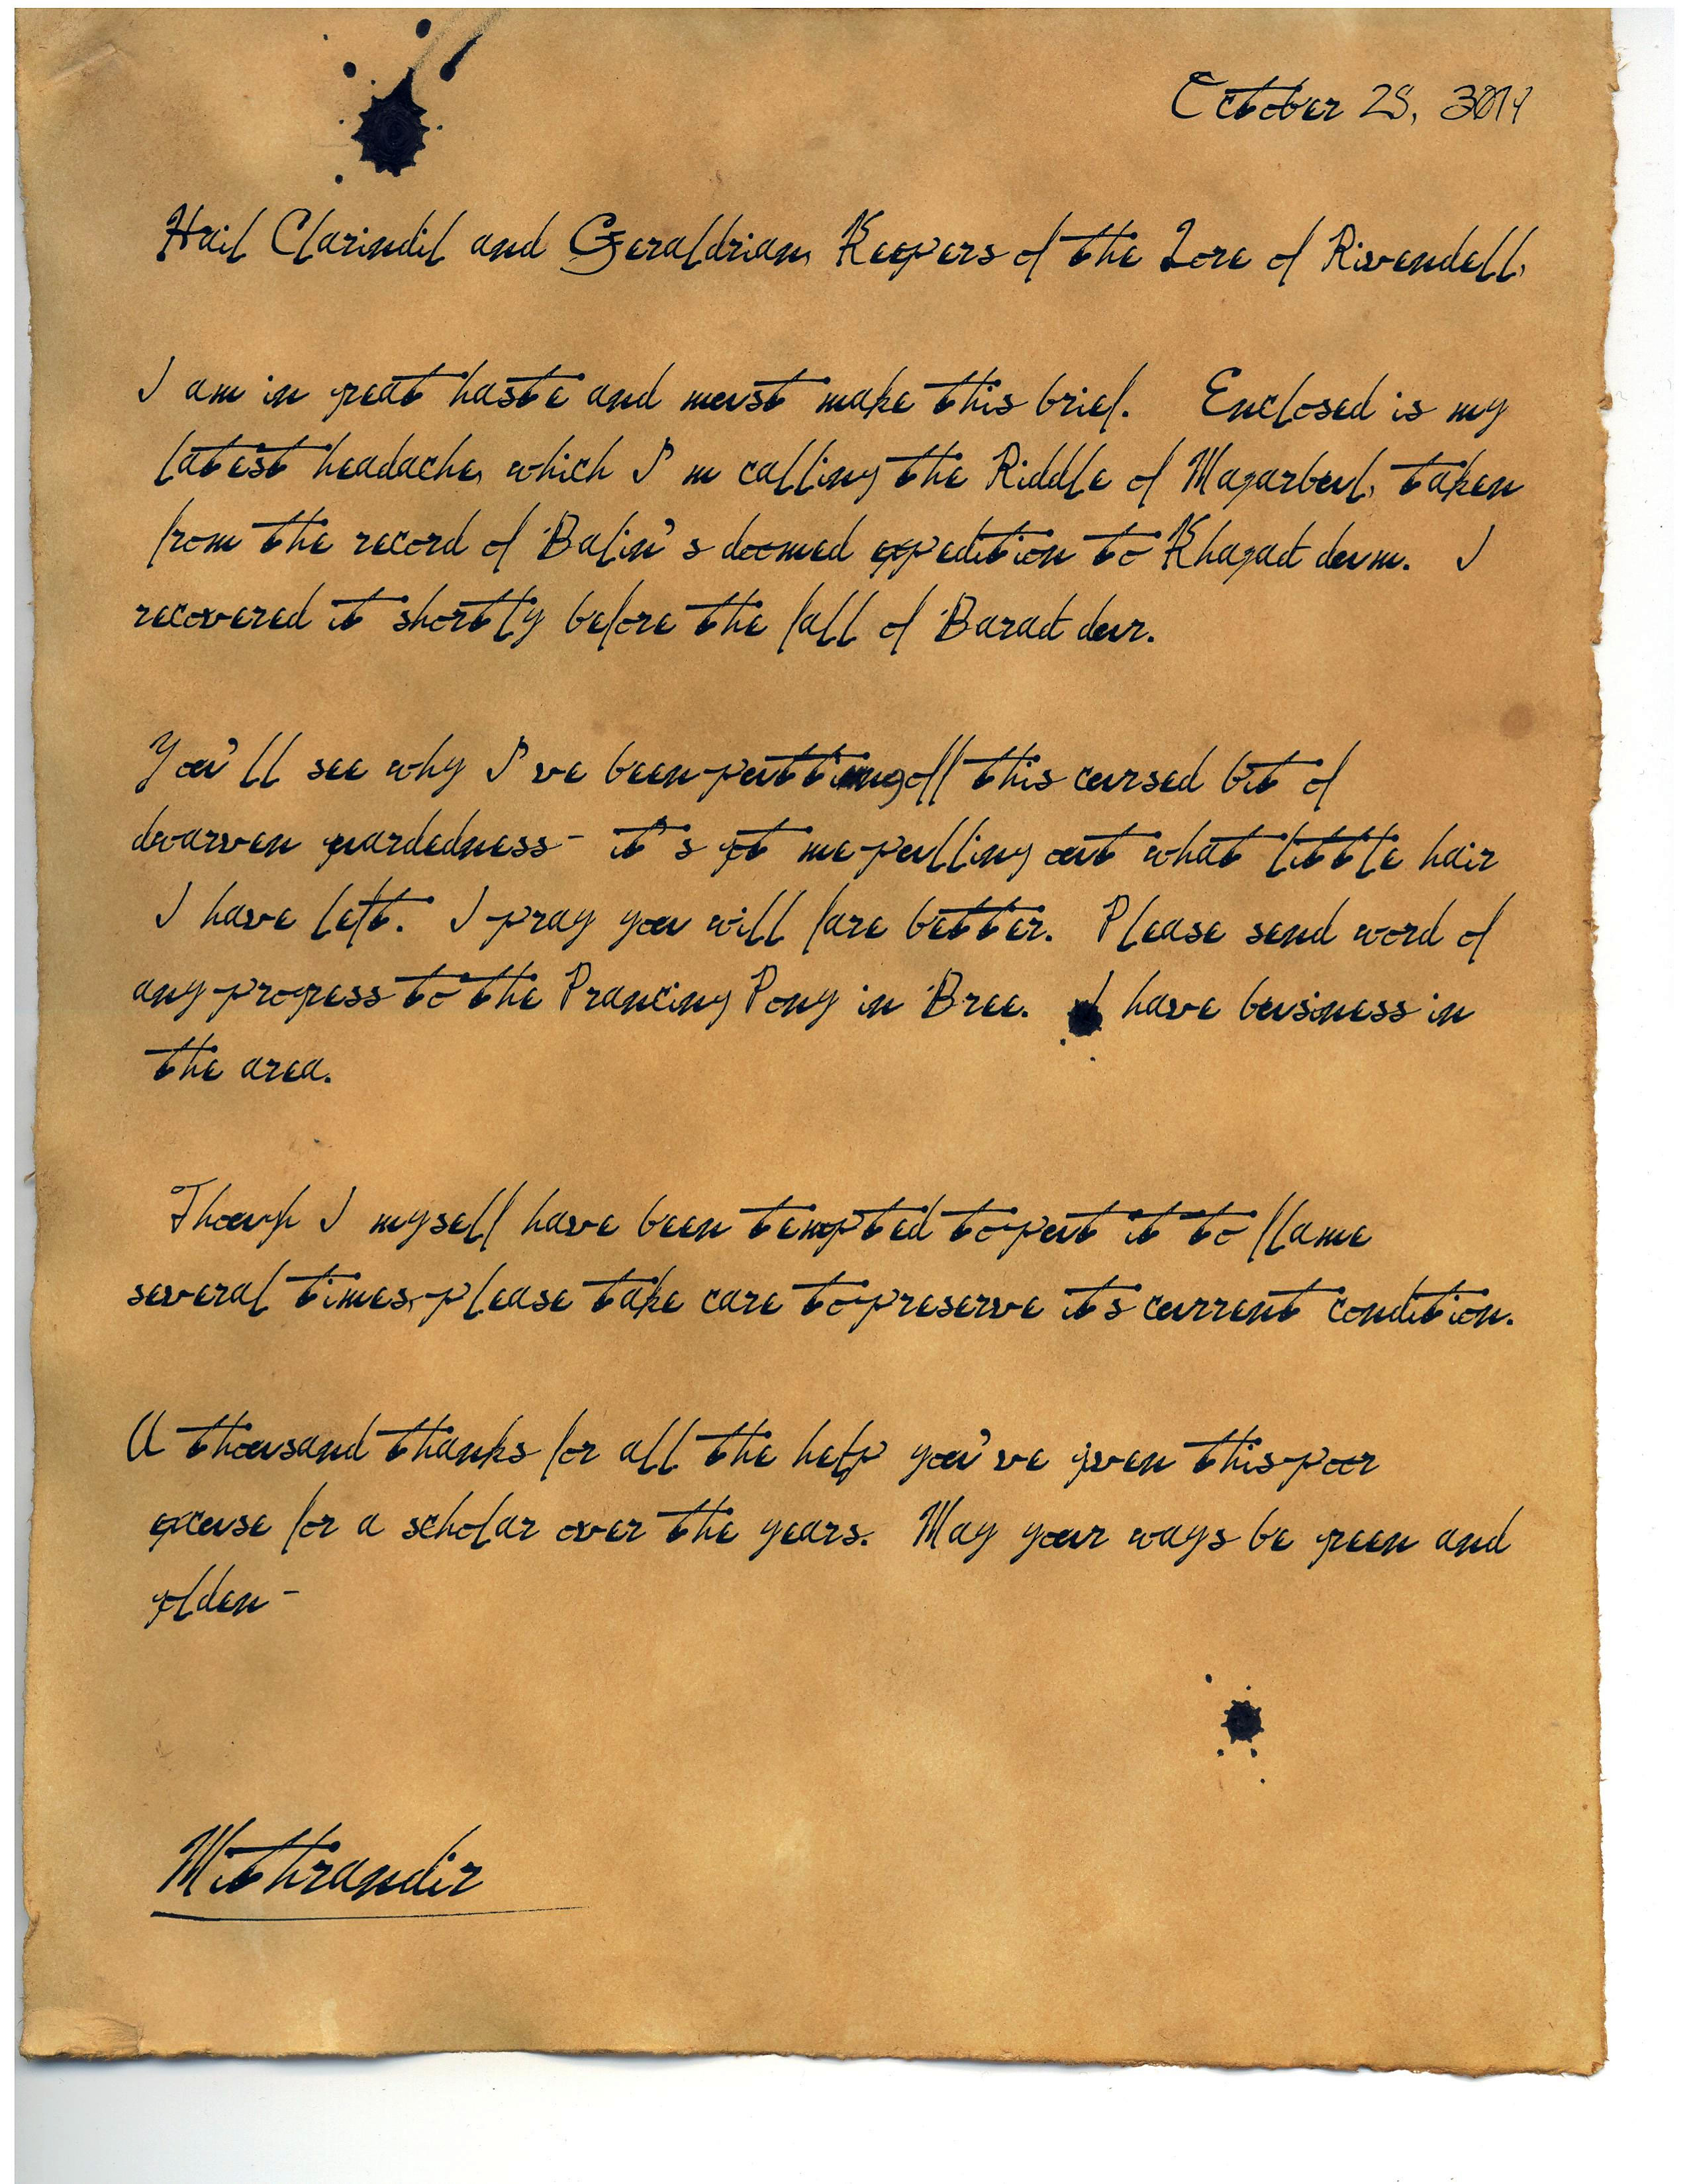 October 25, 3019
Hail Clarindil and Geraldrian, Keepers of the Lore of Rivendell,
I am in great haste and must make this brief. Enclosed is my
latest headache, which I'm calling the Riddle of Mazarbul, taken
from the record of Balin's doomed expedition to Khazad dum. I
recovered it shortly before the fall of Barad dur.
You'll see why I've been putting off this cursed bit of
dwarven guardedness - it's got me pulling out what little hair
I have left. I pray you will fare better. Please send word of
any progress to the Prancing Pony in Bree. I have business in
the area.
Though I myself have been tempted to put it to flame
several times, please take care to preserve its current condition.
A thousand thanks for all the help you've given this poor
excuse for a scholar over the years. May your ways be green and
golden -
Mithrandir